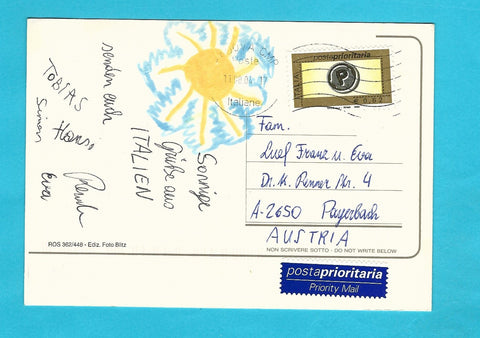 Sonnige
Grüße aus
ITALIEN
senden euch
TOBIAS
Simon
Eva
ROS 362/448 - Ediz. Foto Blitz
Poste
Italiane
postaprioritaria
P
ITALIA
€ 0,62
Fam.
Luef Franz u. Eva
Dr. K. Renner Str. 4
A-2650 Payerbach
AUSTRIA
NON SCRIVERE SOTTO - DO NOT WRITE BELOW
postaprioritaria
Priority Mail